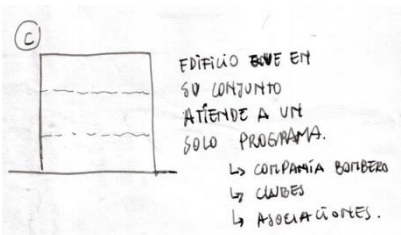 C
EDIFICIO QUE EN
SU CONJUNTO
ATIENDE A UN
SOLO PROGRAMA.
↳ COMPAÑÍA BOMBERO
↳ CLUBES
↳ ASOCIACIONES.